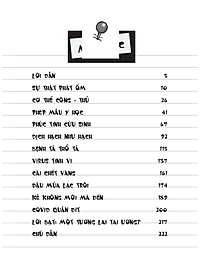 LỜI DẪN 5
SỰ THẬT PHÁT ỐM 10
CƠ THỂ CÔNG - THỦ 26
PHÉP MẦU Y HỌC 41
PHÚC TINH CỨU SINH 67
DỊCH HẠCH NHƯ HẠCH 92
BỆNH TẢ THỔ TẢ 115
VIRUS TINH VI 137
CÁI CHẾT VÀNG 161
ĐẬU MÙA LẠC TRÔI 174
KẺ KHÔNG MỜI MÀ ĐẾN 189
COVID 200
LỜI BẠT: MỘT TƯƠNG LAI TAI ƯƠNG? 217
CHÚ DẪN 222